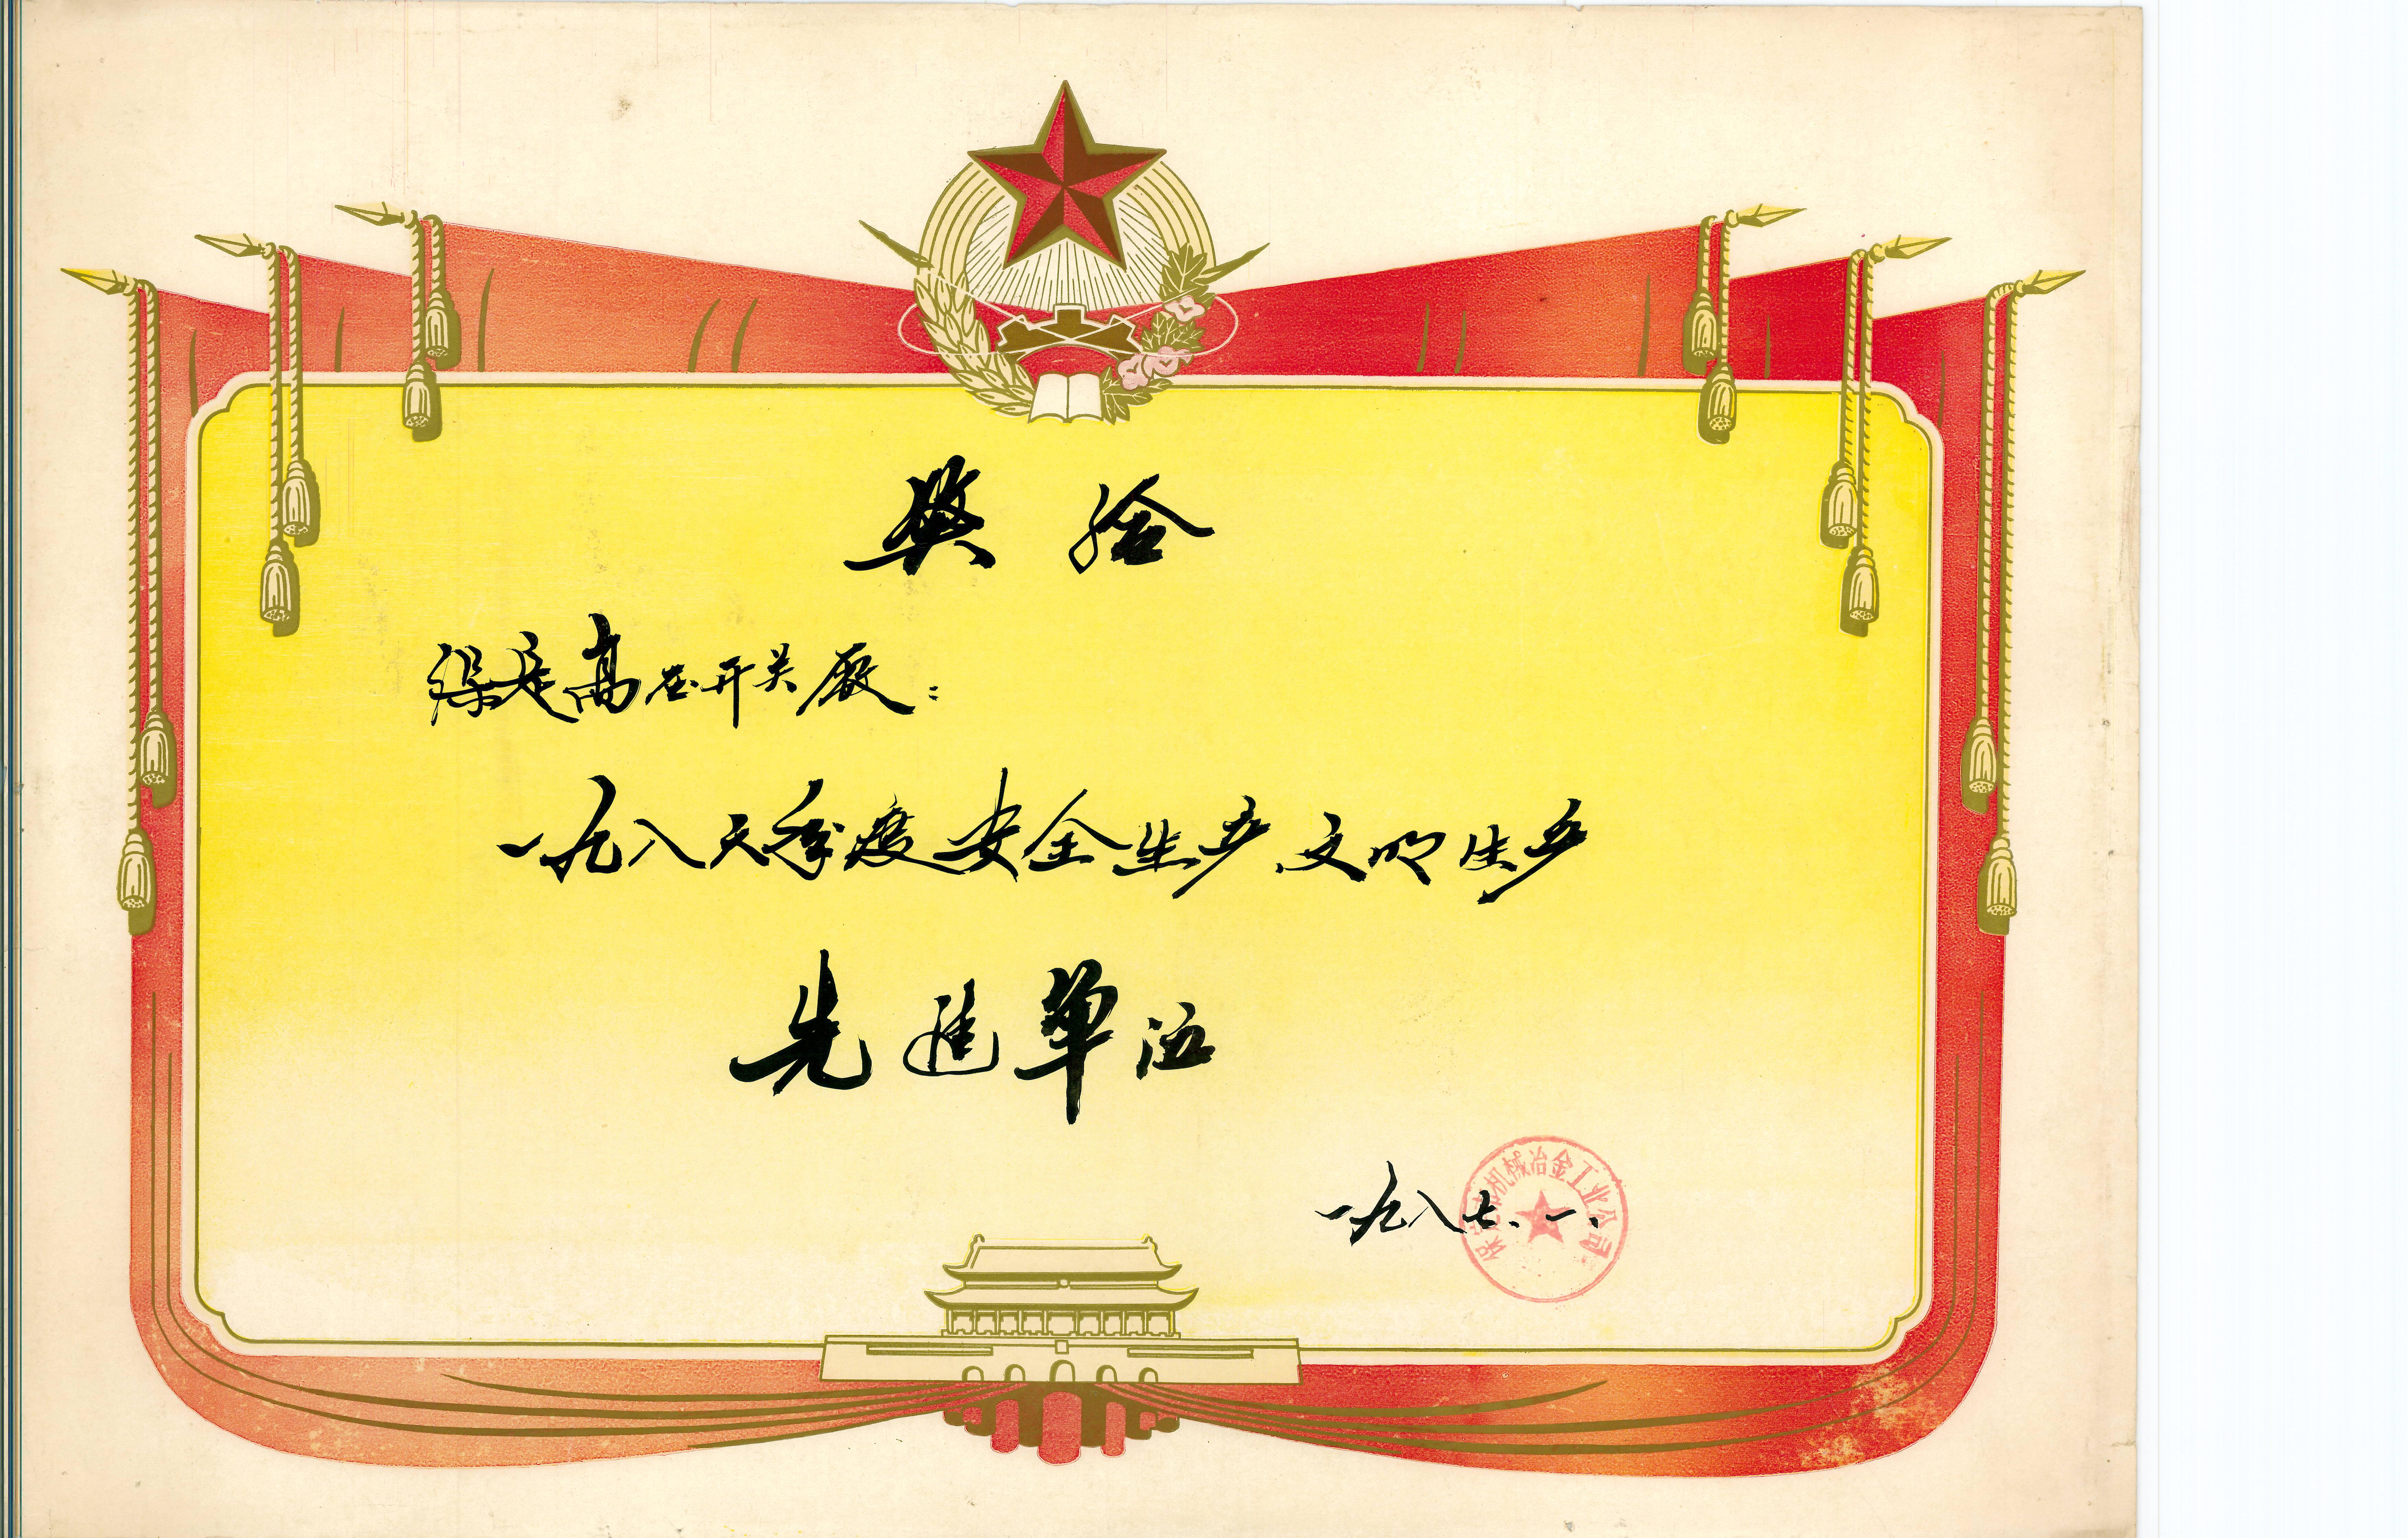 奖给
保定高压开关厂：
一九八六年度安全生产、文明生产
先进单位
一九八七.一.
保定市机械冶金工业公司